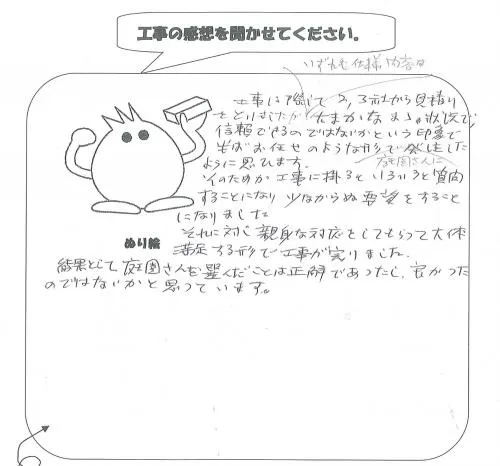 工事の感想を聞かせてください。
いずれも仕様、内容が
工事に際して2,3社から見積り
をとりましたが大まかなままの状況で
信頼できるのではないかという印象で
半ばお任せのような形で発注した
ように思います。
庭園さんに
そのためか工事に掛るといろいろと質問
することになり少なからぬ要望をすること
になりました
それに対し親身な対応をしてもらって大体
満足する形で工事が完りました.
ぬり絵
結果として庭園さんを選んだことは正解であったし、良かった
のではないかと思っています。